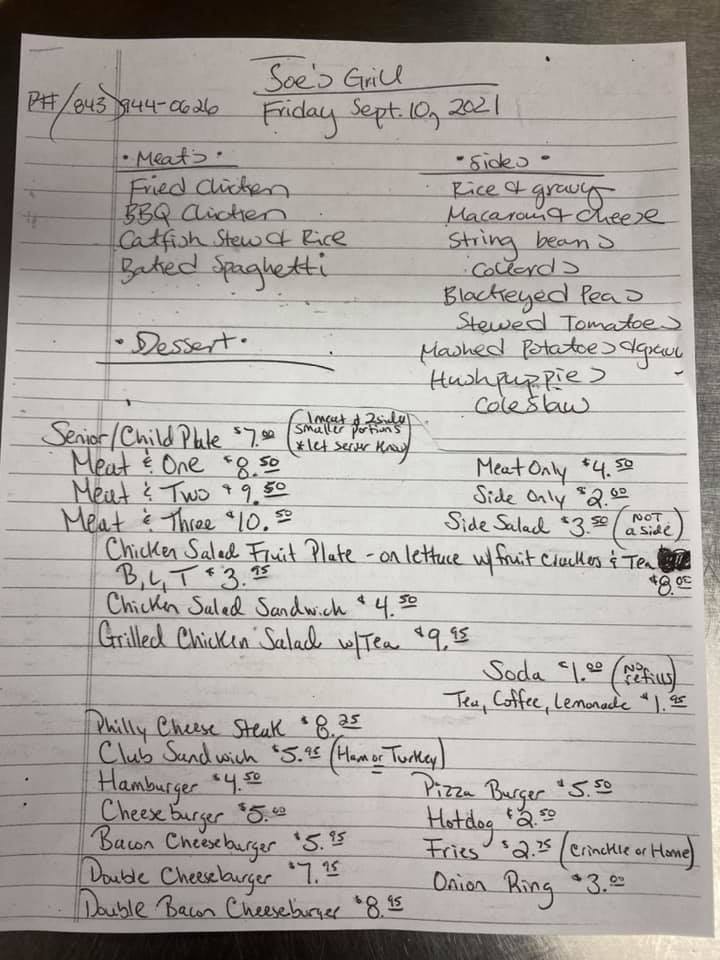 Joe's Grill
PH#/843)944-0626 Friday Sept. 10, 2021
• Meats • • Sides •
Fried Chicken Rice & gravy
BBQ Chicken Macaroni & cheese
Catfish Stew & Rice String beans
Baked Spaghetti Collards
Blackeyed Peas
Stewed Tomatoes
• Dessert • Mashed Potatoes & gravy
Hushpuppies
Coleslaw
Senior/Child Plate $7.00 (1 meat & 2 sides smaller portions * let server know)
Meat & One $8.50 Meat Only $4.50
Meat & Two $9.50 Side Only $2.00
Meat & Three $10.50 Side Salad $3.50 (NOT a side)
Chicken Salad Fruit Plate - on lettuce w/fruit crackers & Tea
$8.00
B, L, T $3.95
Chicken Salad Sandwich $4.50
Grilled Chicken Salad w/Tea $9.95
Soda $1.00 (No refills)
Tea, Coffee, Lemonade $1.95
Philly Cheese Steak $8.25
Club Sandwich $5.95 (Ham or Turkey)
Hamburger $4.50 Pizza Burger $5.50
Cheeseburger $5.00 Hotdog $2.50
Bacon Cheeseburger $5.95 Fries $2.75 (Crinckle or Home)
Double Cheeseburger $7.95 Onion Ring $3.00
Double Bacon Cheeseburger $8.95